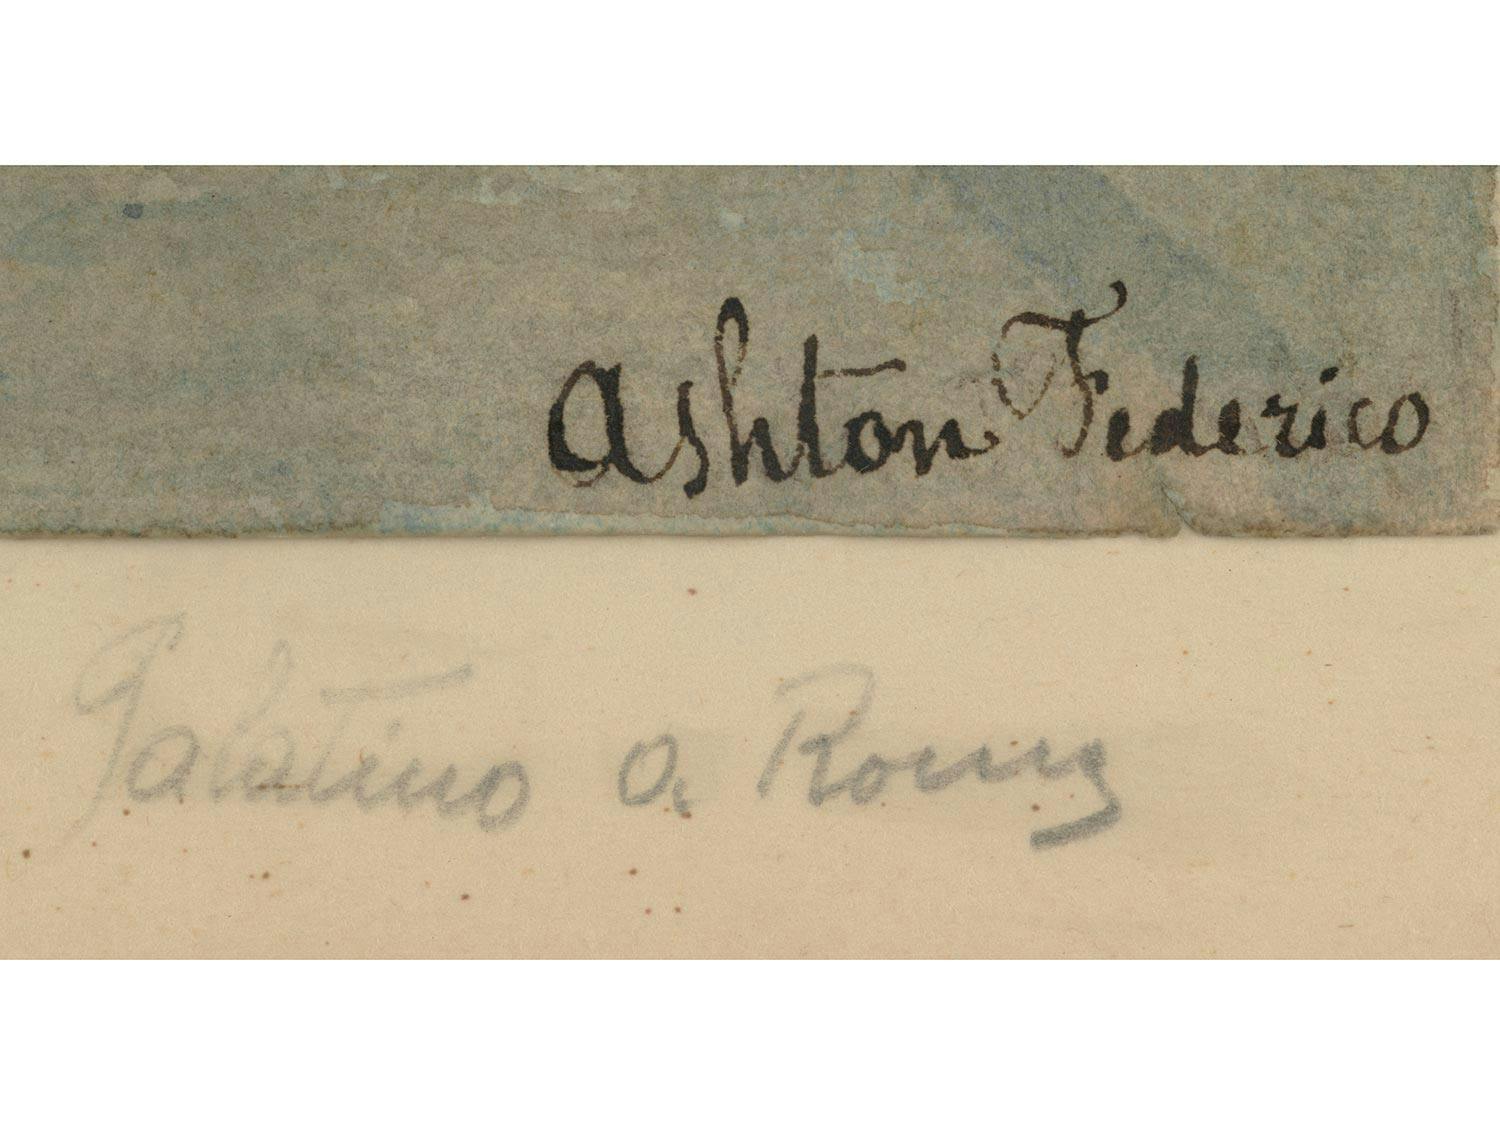 Ashton Federico
Palatino a Roma